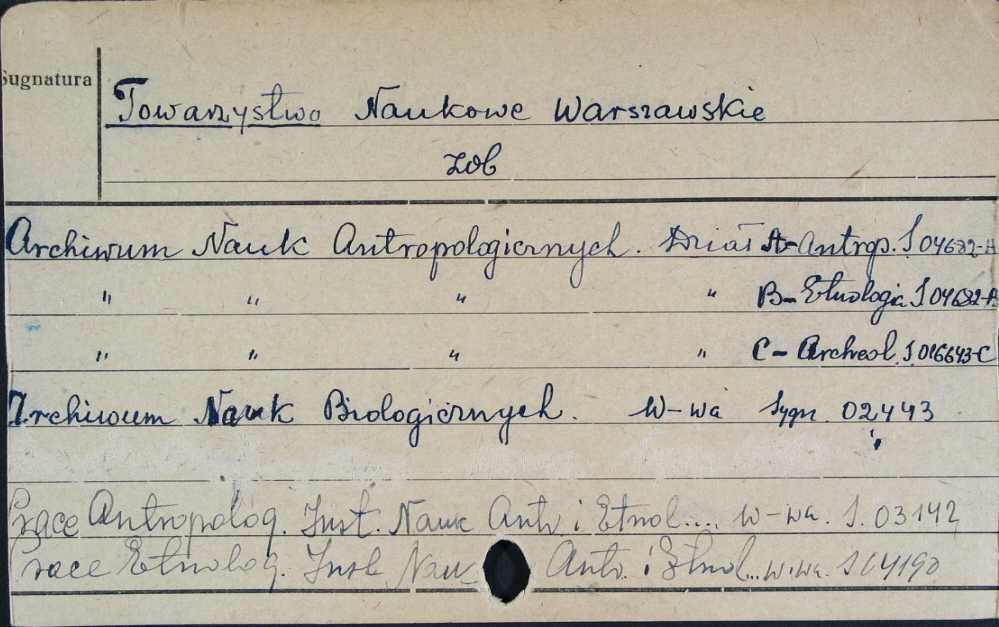 Sygnatura
Towarzystwo Naukowe Warszawskie
zob
Archiwum Nauk Antropologicznych. Dział A-Antrop. S 04682-A
" " " " B-Etnologia S
" " " " C-Archeol. S 016643-C
Archiwum Nauk Biologicznych. W-wa Sygn. 02443
Prace Antropolog. Inst. Nauk Antr i Etnol.... W-wa. S. 03142
Prace Etnolog. Inst. Nau Antr. i Etnol... W-wa.